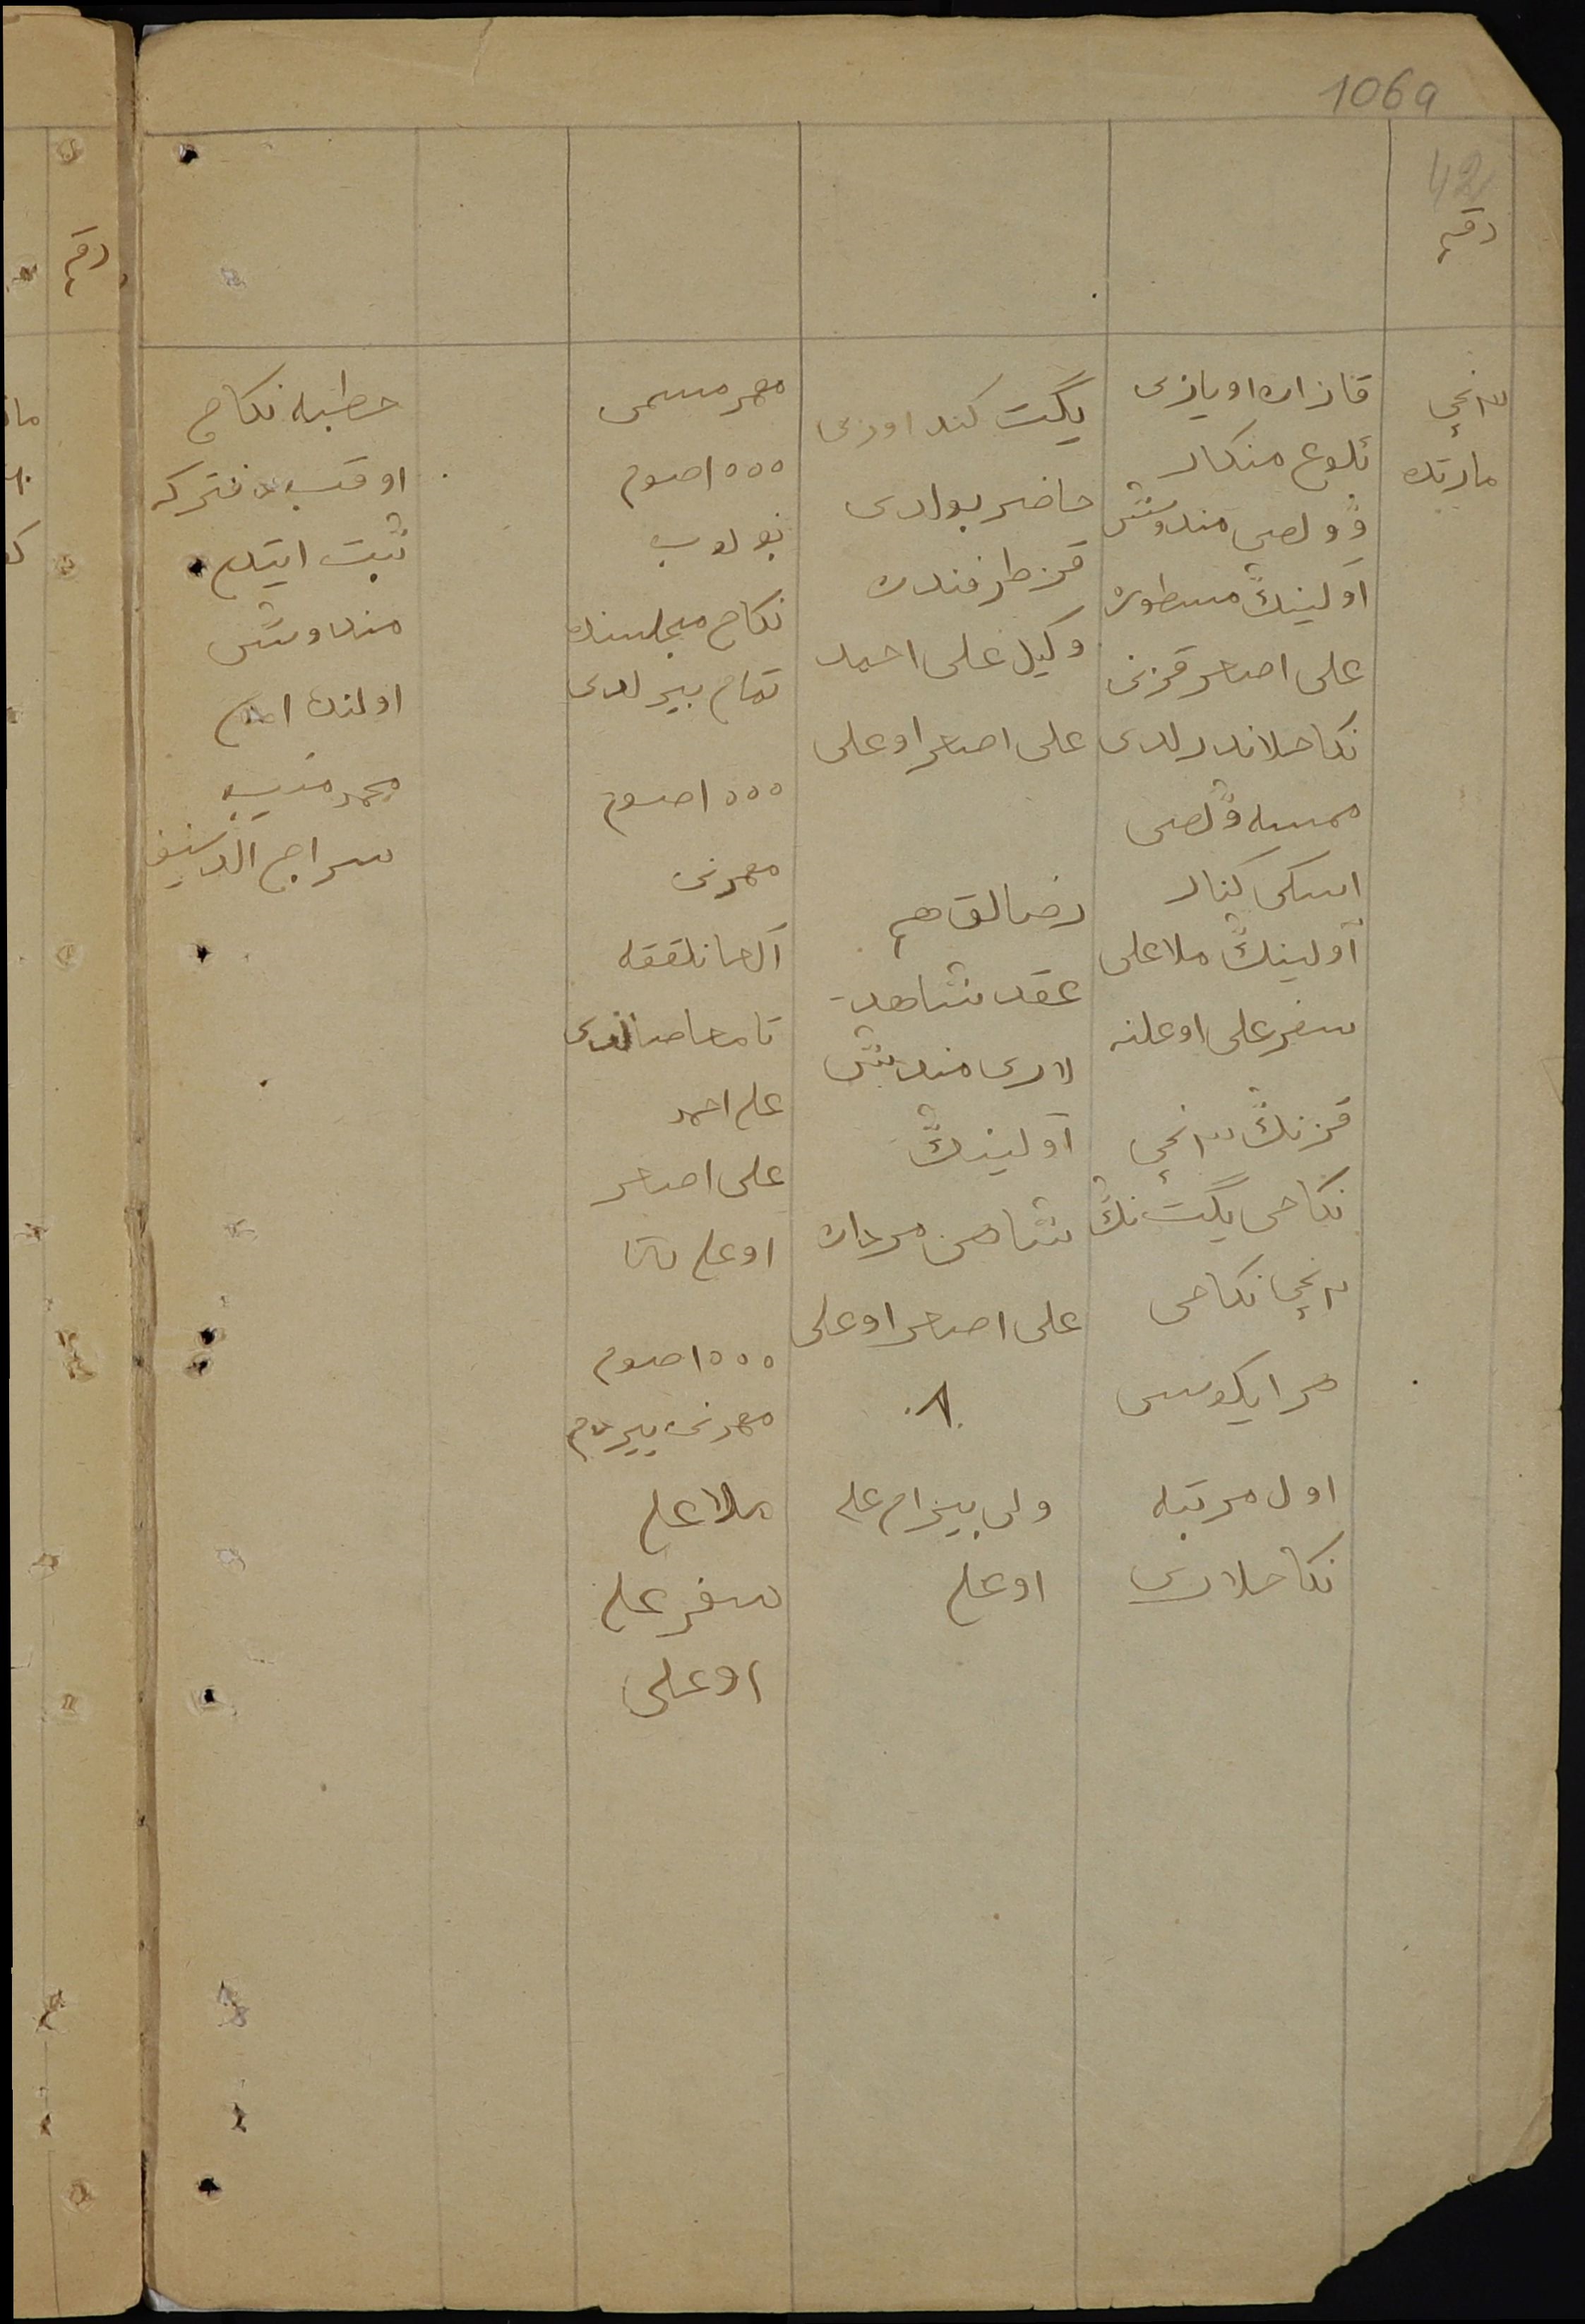 1069
42
رقم
نچی
مارتده
قازان اویازی
ئلوغ منکار
وولصی مندوش
آولینڭ مسطوره
علی اصغر قزنی
نکاحلاندرلدی
ممسه ولصی
اسکی کنار
آولینڭ ملا علی
سفرعلی اوغلنه
قزنڭ نچی
نکاحی یگت نڭ
نچی نکاحی
هر ایکوسی
اول مرتبه
نکاحلاری
یگت کند اوزی
حاضر بولدی
قز طرفندن
وکیل علی احمد
علی اصغر اوغلی
رضالق هم
عقد شاهد
لاری مندوش
آولینڭ
شاهی مردان
علی اصغر اوغلی
۸
ولی بیرام علی
اوغلی
مهر مسمی
۱۰۰۰ صوم
بولوب
نکاح مجلسنده
تمام بیرلدی
۱۰۰۰ صوم
مهرنی
آلحانلقغه
علی احمد
علی اصغر
اوغلی
۱۰۰۰ صوم
مهرنی بیردم
ملا علی
سفر علی
اوغلی
خطبه نکاح
اوقب دفترکه
ثبت ایتدم
مندوش
اولنده امام
محمد منیب
سراج الدینف
رقم